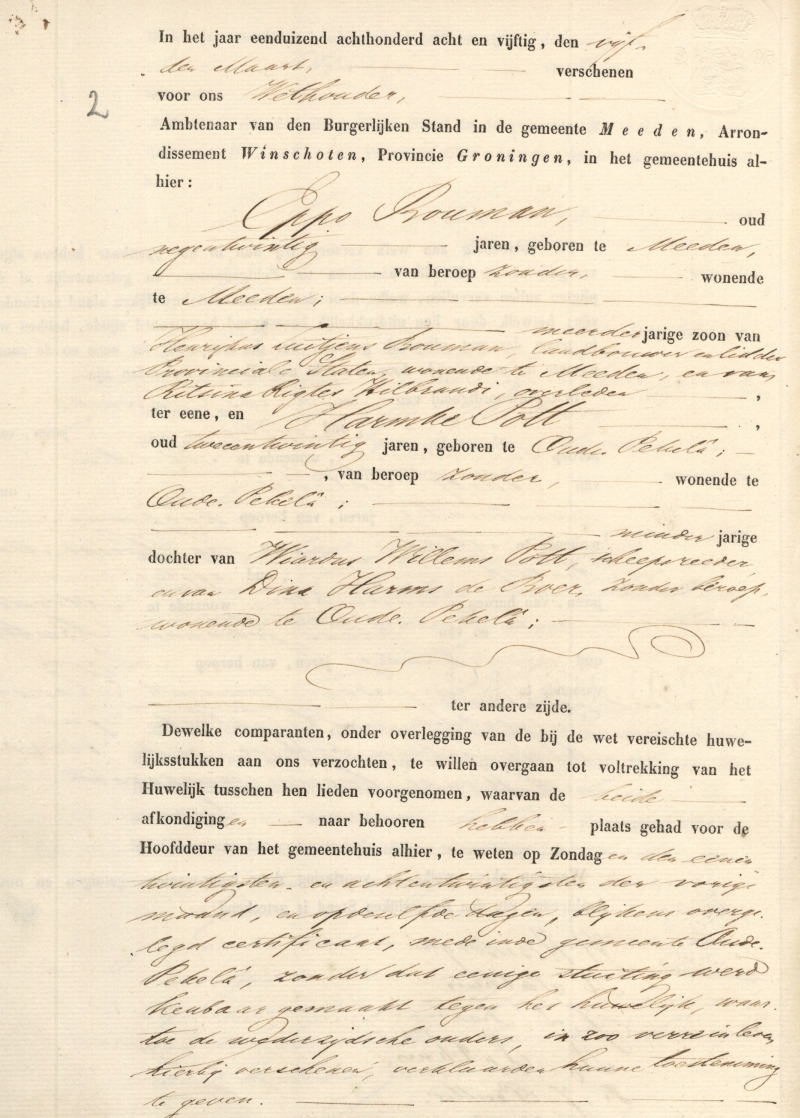 In het jaar eenduizend achthonderd acht en vijftig, den vijf
den Maart, verschenen
2
voor ons Wethouder,
Ambtenaar van den Burgerlijken Stand in de gemeente Meeden, Arron-
dissement Winschoten, Provincie Groningen, in het gemeentehuis al-
hier:
Eppo Bouman, oud
negentwintig jaren, geboren te Meeden,
van beroep zonder, wonende
te Meeden;
meerderjarige zoon van
Henrikus Bouman, landbouwer en lid der
Provinciale Staten, wonende te Meeden, en van
Ritsina Rigtes Hilbrandi, overleden,
ter eene, en Harmke Pott,
oud tweeentwintig jaren, geboren te Oude-Pekela;
, van beroep zonder, wonende te
Oude-Pekela;
minderjarige
dochter van Wiardus Willems Pott, scheepsreeder
en van Dina Harms de Boer, zonder beroep,
wonende te Oude-Pekela;
ter andere zijde.
Dewelke comparanten, onder overlegging van de bij de wet vereischte huwe-
lijksstukken aan ons verzochten, te willen overgaan tot voltrekking van het
Huwelijk tusschen hen lieden voorgenomen, waarvan de beide
afkondigingen naar behooren hebben plaats gehad voor de
Hoofddeur van het gemeentehuis alhier, te weten op Zondagen den eenen
twintigsten en achtentwintigsten der vorige
maand, en opdeselfde dagen, blijkens overge-
legd certificaat, mede inde gemeente Oude-
Pekela, zonder dat eenige stuiting werd
kenbaar gemaakt tegen het huwelijk, waar-
toe de wederzijdsche ouders, in zoo verre in leven
hierbij verschenen, verklaarden hunne toestemming
te geven.